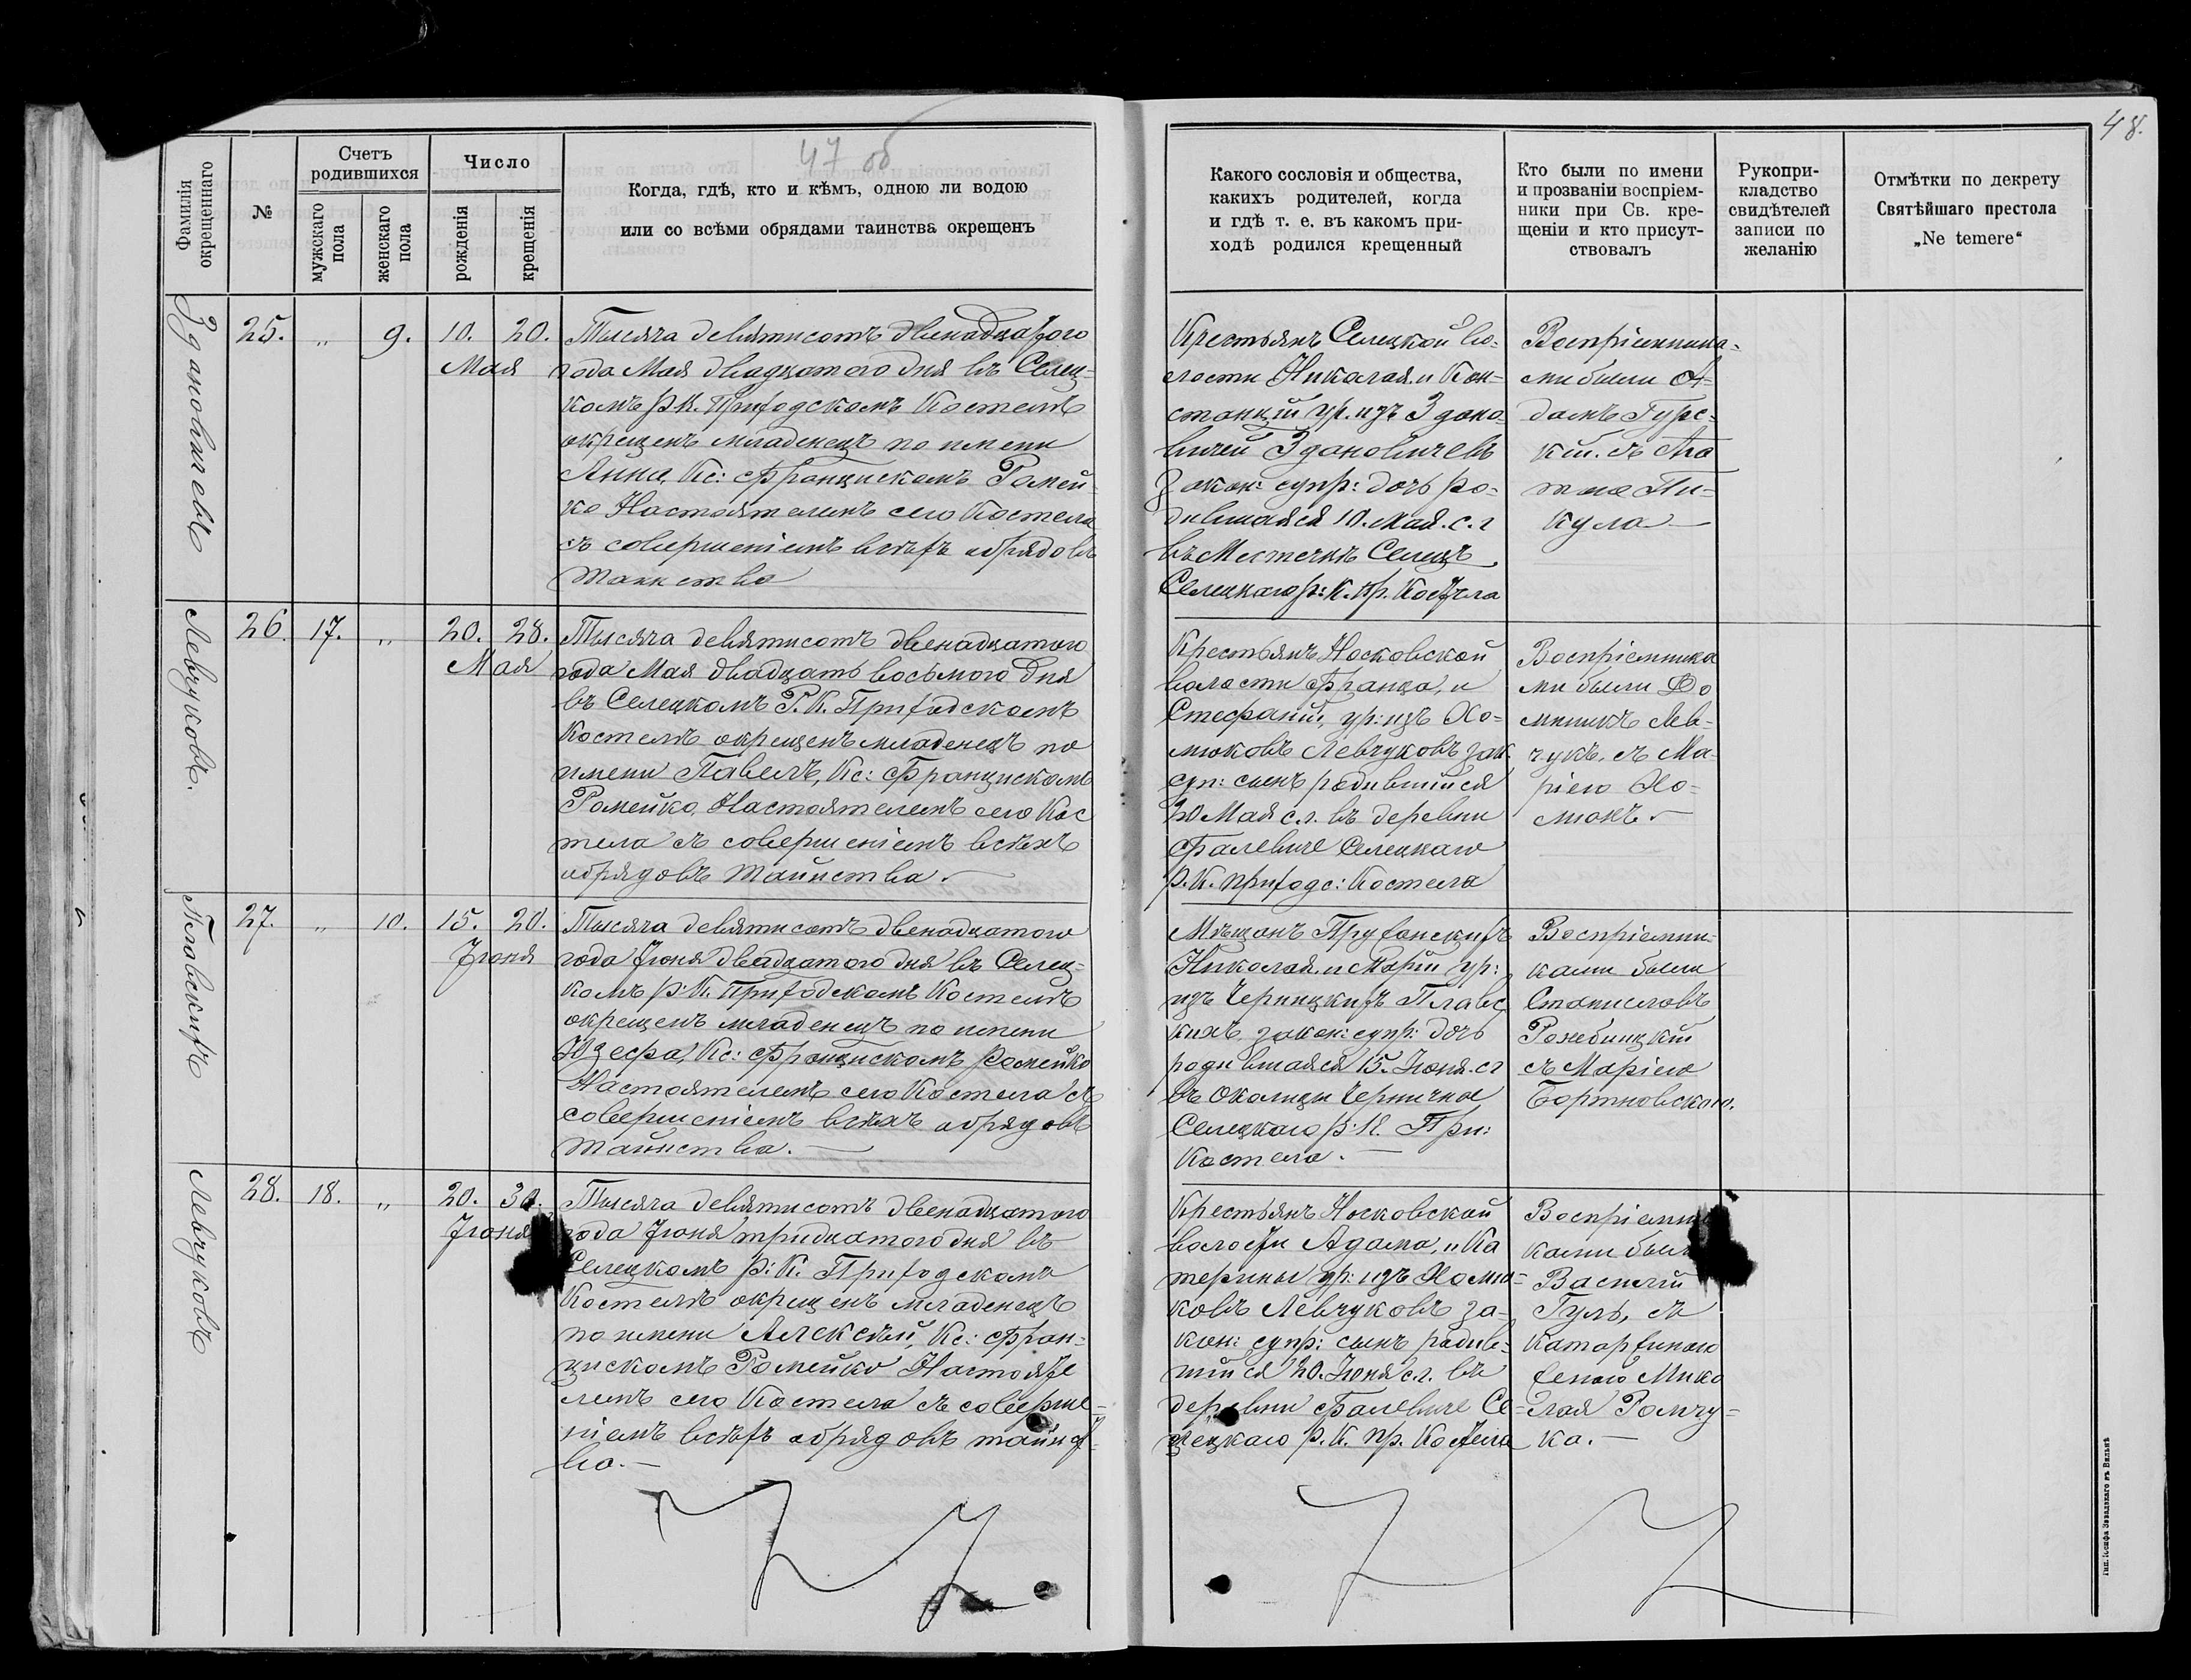 47 об
48.
Фамилія окрещеннаго
№
Счетъ родившихся
мужскаго пола
женскаго пола
Число
рожденія
крещенія
Когда, гдѣ, кто и кѣмъ, одною ли водою
или со всѣми обрядами таинства окрещенъ
Какого сословія и общества,
какихъ родителей, когда
и гдѣ т. е. въ какомъ при-
ходѣ родился крещенный
Кто были по имени
и прозванію воспріем-
ники при Св. кре-
щеніи и кто присут-
ствовалъ
Рукопри-
кладство
свидѣтелей
записи по
желанію
Отмѣтки по декрету
Святѣйшаго престола
„Ne temere“
Здановичевъ
25. „ 9. 10. 20.
Мая
Тысяча девятисотъ двенадцатого
года Мая двадцатого дня въ Селец-
комъ р.к. Приходскомъ Костелѣ
окрещенъ младенецъ по имени
Анна, Кс: Францискомъ Ромей-
ко Настоятелемъ сего Костела
съ совершеніемъ всѣхъ обрядовъ
таинства
Крестьянъ Селецкой во-
лости Николая и Кон-
станціи ур. изъ Здано-
вичей Здановичевъ
закон: супр: дочь ро-
дившаяся 10. Мая. с. г
въ Местечкѣ Селецъ
Селецкаго р: К. Пр. Костела
Воспріемника-
ми были А-
дамъ Гурс-
кій. съ Ага
тою Пи-
кула
Левчуковъ.
26. 17. „ 20. 28.
Мая
Тысяча девятисотъ двенадцатого
года Мая двадцать восьмого дня
въ Селецкомъ Р. К. Приходскомъ
Костелѣ окрещенъ младенецъ по
имени Павелъ, Кс: Францискомъ
Ромейко, Настоятелемъ сего Кос
тела съ совершеніемъ всѣхъ
обрядовъ Таинства.
Крестьянъ Носковской
волости Франца, и
Стефаніи, ур: изъ Хо-
мюковъ Левчуковъ зак.
суп: сынъ родившійся
20 Мая с. г. въ деревни
Фалевиче Селецкаго
р. К. приходс: Костела
Воспріемника
ми были До
миникъ Лев-
чукъ, съ Ма-
ріею Хо-
мюкъ.
Плавскихъ
27. „ 10. 15. 20.
Іюня
Тысяча девятисотъ двенадцатого
года Іюня двадцатого дня въ Селец-
комъ р: К. Приходскомъ Костелѣ
окрещенъ младенецъ по имени
Юзефа, Кс: Францискомъ Ромейко
Настоятелемъ сего Костела съ
совершеніемъ всѣхъ обрядовъ
таинства.
Мѣщанъ Пружанскихъ
Николая и Маріи ур:
изъ Черницкихъ Плавс
кихъ закон: супр: дочь
родившаяся 15. Іюня. с г
въ Околицы Чернички
Селецкаго р: К. При:
Костела.
Воспріемни-
ками были
Станиславъ
съ Маріею
Бортновскою.
Левчуковъ
28. 18. „ 20. 30.
Іюня
Тысяча девятисотъ двенадцатого
года Іюня тридцатого дня въ
Селецкомъ р: К. Приходскомъ
Костелѣ окрещенъ младенецъ
по имени Алексѣй, Кс: Фран-
цискомъ Ромейко Настояте
лемъ сего Костела съ соверше-
ніемъ всѣхъ обрядовъ таинст-
ва.
Крестьянъ Носковской
волости Адама, и Ка
терины ур: изъ Хомю-
ковъ Левчуковъ за-
кон: супр: сынъ родив-
шійся 20. Іюня с. г. въ
деревни Фалевиче Се-
лецкаго р. К. пр. Костела
Воспріемни
ками были
Василій
Гуль, съ
женою Мико
лая Ромчу-
ка.
Тип. Іосифа Завадзкаго въ Вильнѣ